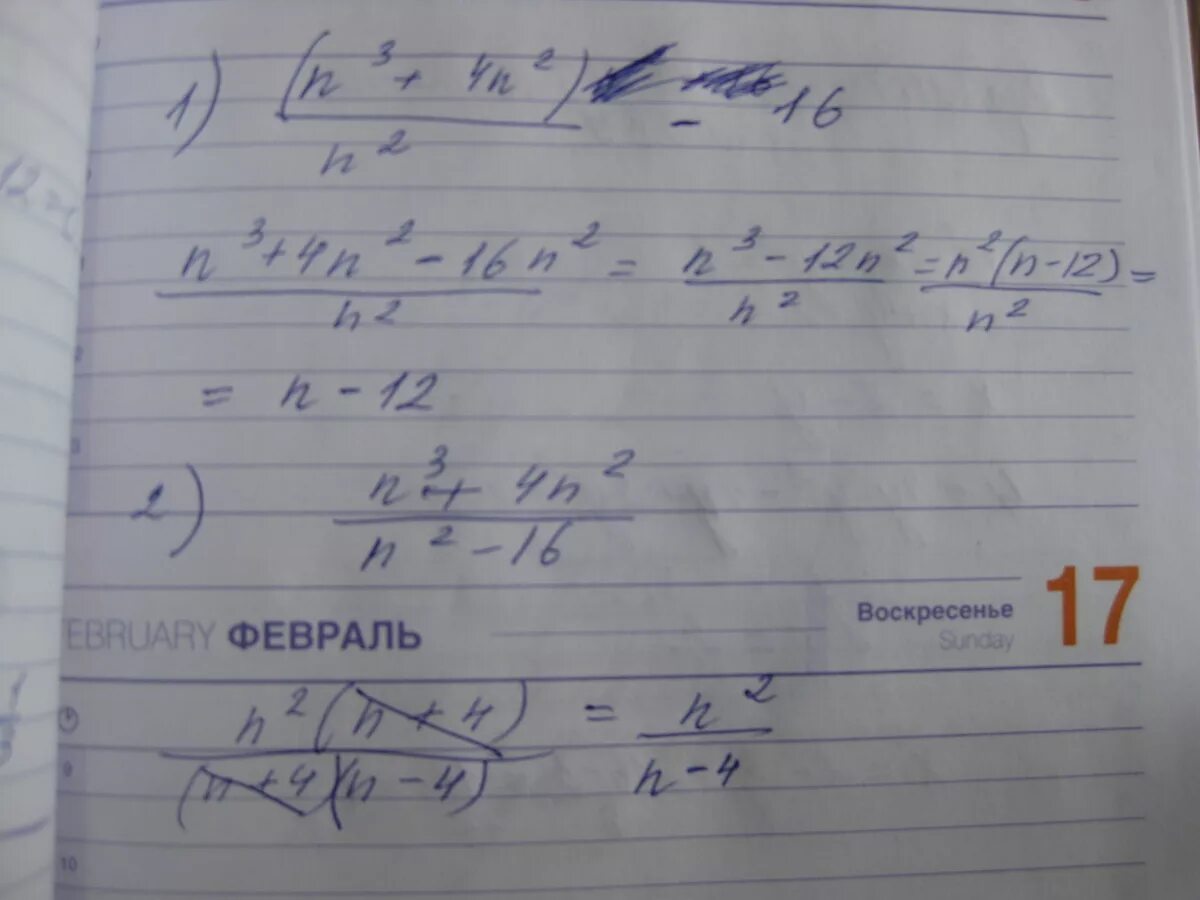 1) (n³ + 4n²) / n² - 16
(n³ + 4n² - 16n²) / n² = (n³ - 12n²) / n² = n²(n - 12) / n² =
= n - 12
2) (n³ + 4n²) / (n² - 16)
EBRUARY ФЕВРАЛЬ Воскресенье Sunday 17
n²(n + 4) / (n + 4)(n - 4) = n² / (n - 4)
9
10